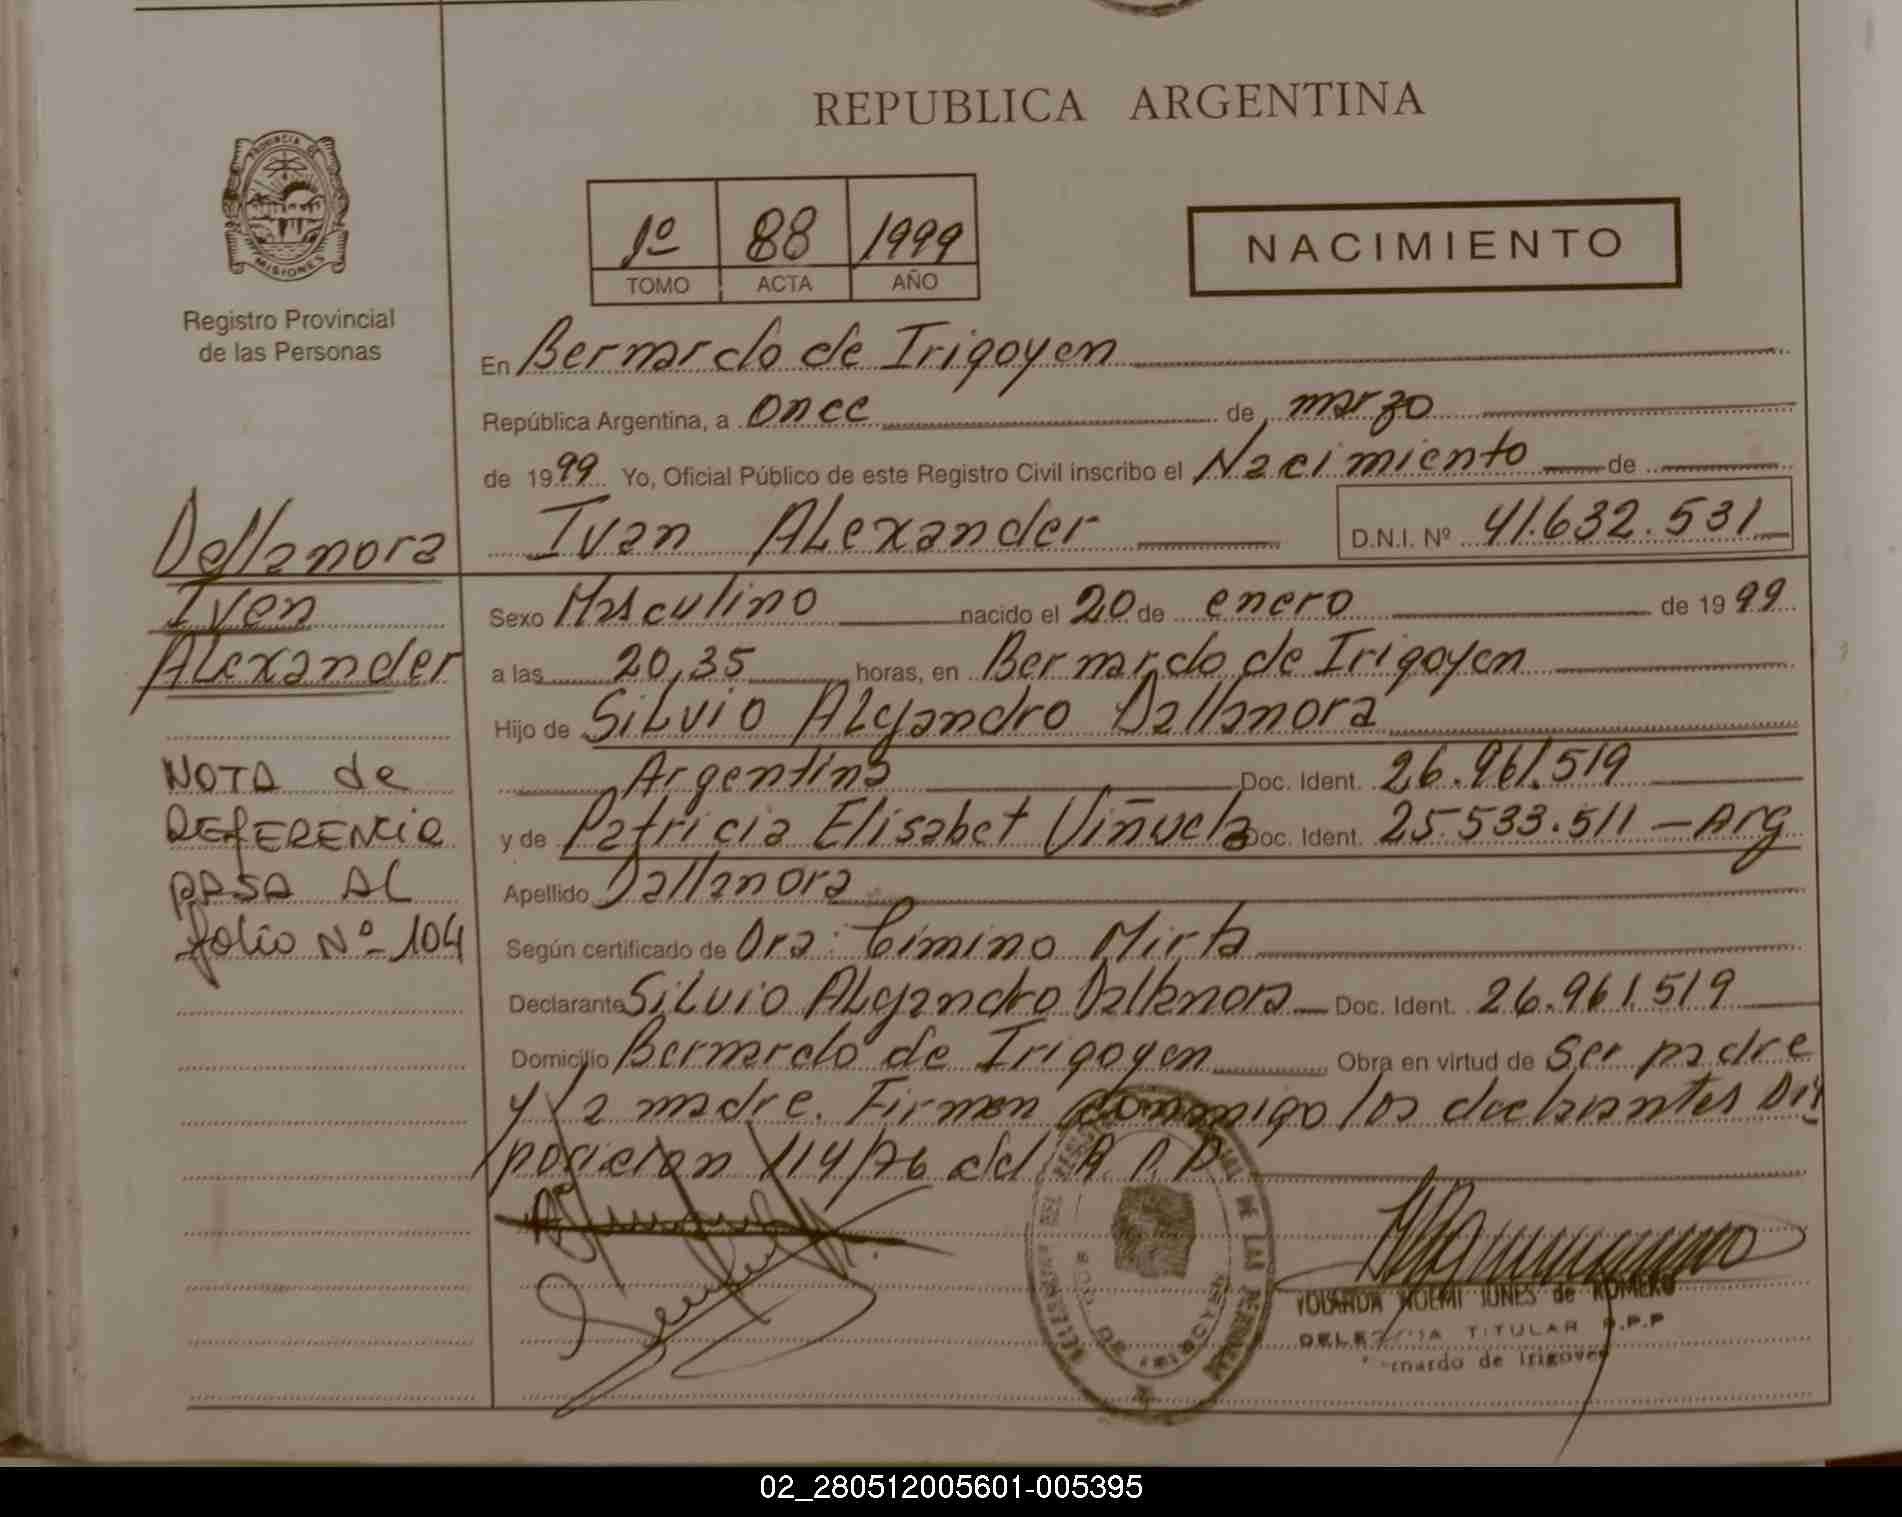 REPUBLICA ARGENTINA
PROVINCIA DE
MISIONES
Registro Provincial
de las Personas
1º 88 1999
TOMO ACTA AÑO
NACIMIENTO
En Bernardo de Irigoyen
República Argentina, a once de marzo
de 1999 Yo, Oficial Público de este Registro Civil inscribo el Nacimiento de
Ivan ALexander D.N.I. Nº 41.632.531
Dallanora
Ivan
ALexander
NOTA de
REFERENCIA
PASA AL
folio Nº 104
Sexo Masculino nacido el 20 de enero de 1999
a las 20,35 horas, en Bernardo de Irigoyen
Hijo de SiLvio ALejandro Dallanora
Argentino Doc. Ident. 26.961.519
y de Patricia Elisabet Viñuela Doc. Ident. 25.533.511 - Arg
Apellido Dallanora
Según certificado de Dra: Cimino Mirta
Declarante SiLvio ALejandro Dallanora Doc. Ident. 26.961.519
Domicilio Bernardo de Irigoyen Obra en virtud de ser padre
y la madre. Firman conmigo los declarantes Dis
posicion 114/76 del R.P.P.
DE LAS PERSONAS
YOLANDA NOEMI JONES de ROMERO
DELEGADA TITULAR R.P.P
Bernardo de Irigoyen
02_280512005601-005395